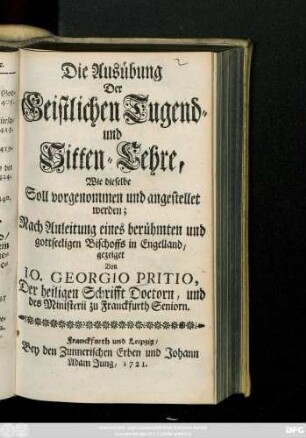 2
Die Ausübung
Der
Geistlichen Tugend-
und
Sitten-Lehre,
Wie dieselbe
Soll vorgenommen und angestellet
werden;
Nach Anleitung eines berühmten und
gottseeligen Bischoffs in Engelland,
gezeiget
Von
IO. GEORGIO PRITIO,
Der heiligen Schrifft Doctorn, und
des Ministerii zu Franckfurth Seniorn.
Franckfurth und Leipzig,
Bey den Zunnerischen Erben und Johann
Adam Jung, 1721.